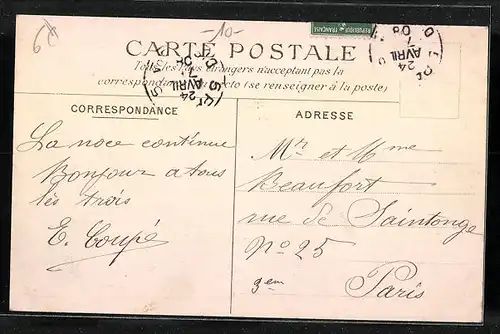 6f
-10-
RÉPUBLIQUE FRANÇAISE
CARTE POSTALE
Tous les Pays étrangers n'acceptant pas la
correspondance au recto (se renseigner à la poste)
24
AVRIL
24
AVRIL
08
CORRESPONDANCE
La noce continue
Bonjour a tous
lés trois
E. Coupé
ADRESSE
Mr et Mme
Beaufort
rue de Saintonge
No 25
3em
Paris